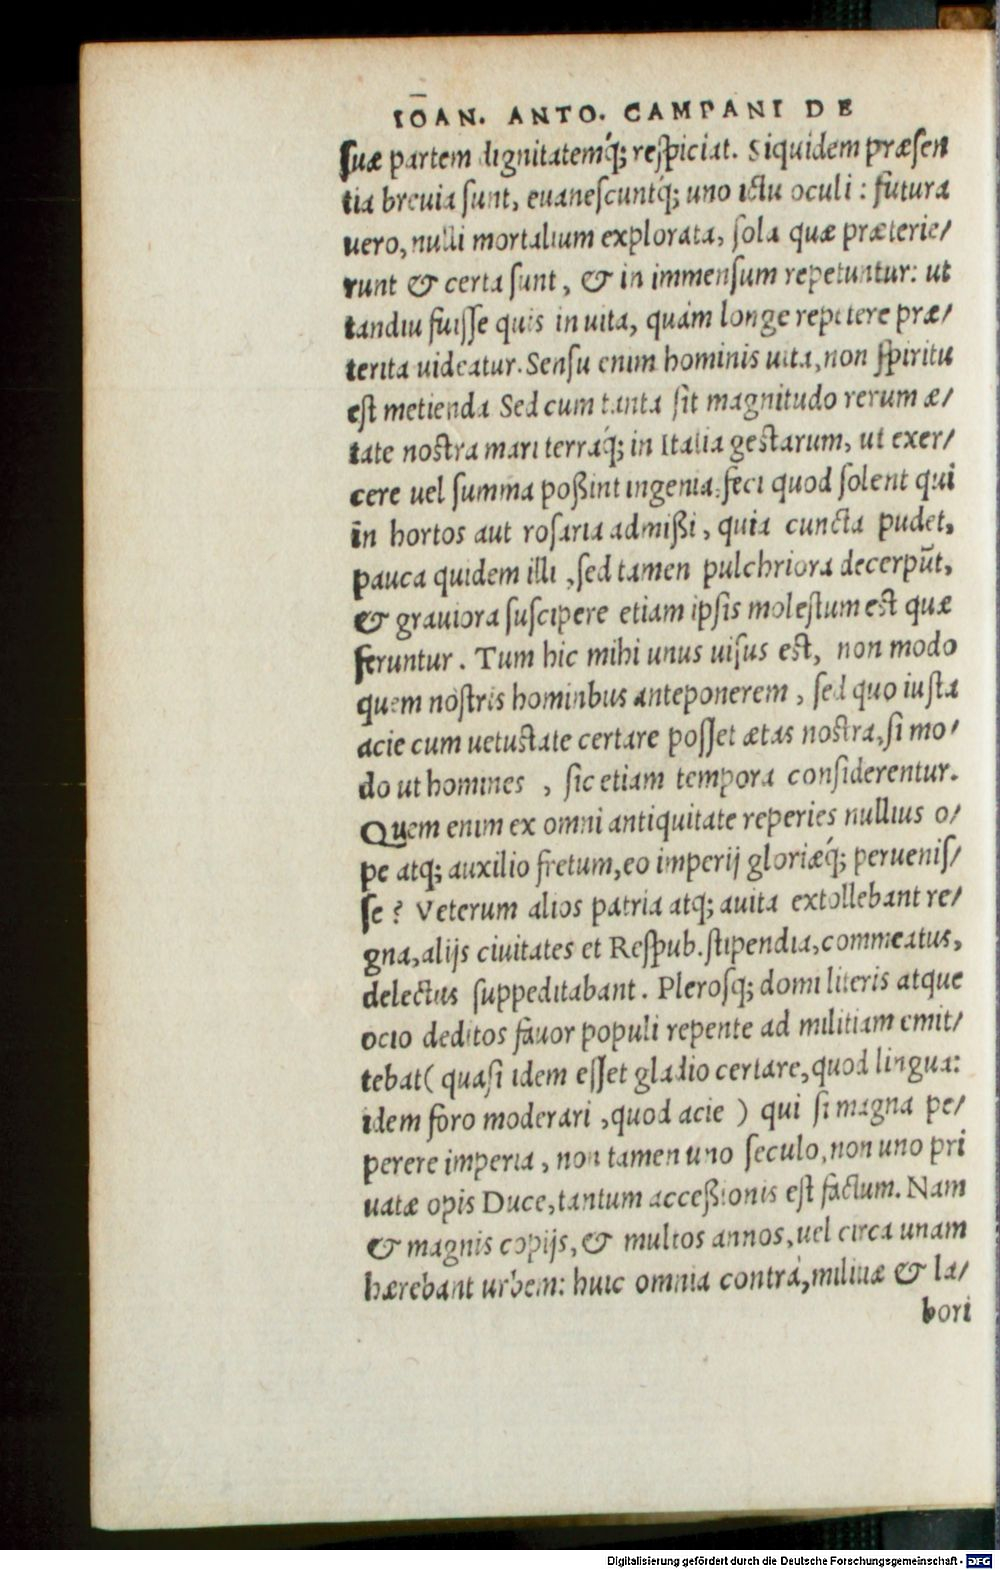 IŌAN. ANTO. CAMPANI DE
ſuæ partem dignitatemq́; reſpiciat. Siquidem præſen
tia breuia ſunt, euaneſcuntq́; uno ictu oculi : futura
uero, nulli mortalium explorata, ſola quæ præterie/
runt & certa ſunt, & in immenſum repetuntur: ut
tandiu fuiſſe quis in uita, quàm longe repetere præ/
terita uideatur. Senſu enim hominis uita, non ſpiritu
eſt metienda Sed cum tanta ſit magnitudo rerum æ/
tate noſtra mari terraq́; in Italia geſtarum, ut exer/
cere uel ſumma poßint ingenia: feci quod ſolent qui
in hortos aut roſaria admißi, quia cuncta pudet,
pauca quidem illi, ſed tamen pulchriora decerpūt,
& grauiora ſuſcipere etiam ipſis moleſtum eſt quæ
feruntur. Tum hic mihi unus uiſus eſt, non modo
quem noſtris hominbus anteponerem, ſed quo iuſta
acie cum uetuſtate certare poſſet ætas noſtra, ſi mo/
do ut homines, ſic etiam tempora conſiderentur.
Quem enim ex omni antiquitate reperies nullius o/
pe atq; auxilio fretum, eo imperij gloriæq́; perueniſ/
ſe? Veterum alios patria atq; auita extollebant re/
gna, alijs ciuitates et Reſpub. ſtipendia, commeatus,
delectus ſuppeditabant. Pleroſq; domi literis atque
ocio deditos fauor populi repente ad militiam emit/
tebat (quaſi idem eſſet gladio certare, quod lingua:
idem foro moderari, quod acie) qui ſi magna pe/
perere imperia, non tamen uno ſeculo, non uno pri
uatæ opis Duce, tantum acceßionis eſt factum. Nam
& magnis copijs, & multos annos, uel circa unam
hærebant urbem: huic omnia contrà, militiæ & la/
bori
Digitalisierung gefördert durch die Deutsche Forschungsgemeinschaft - DFG